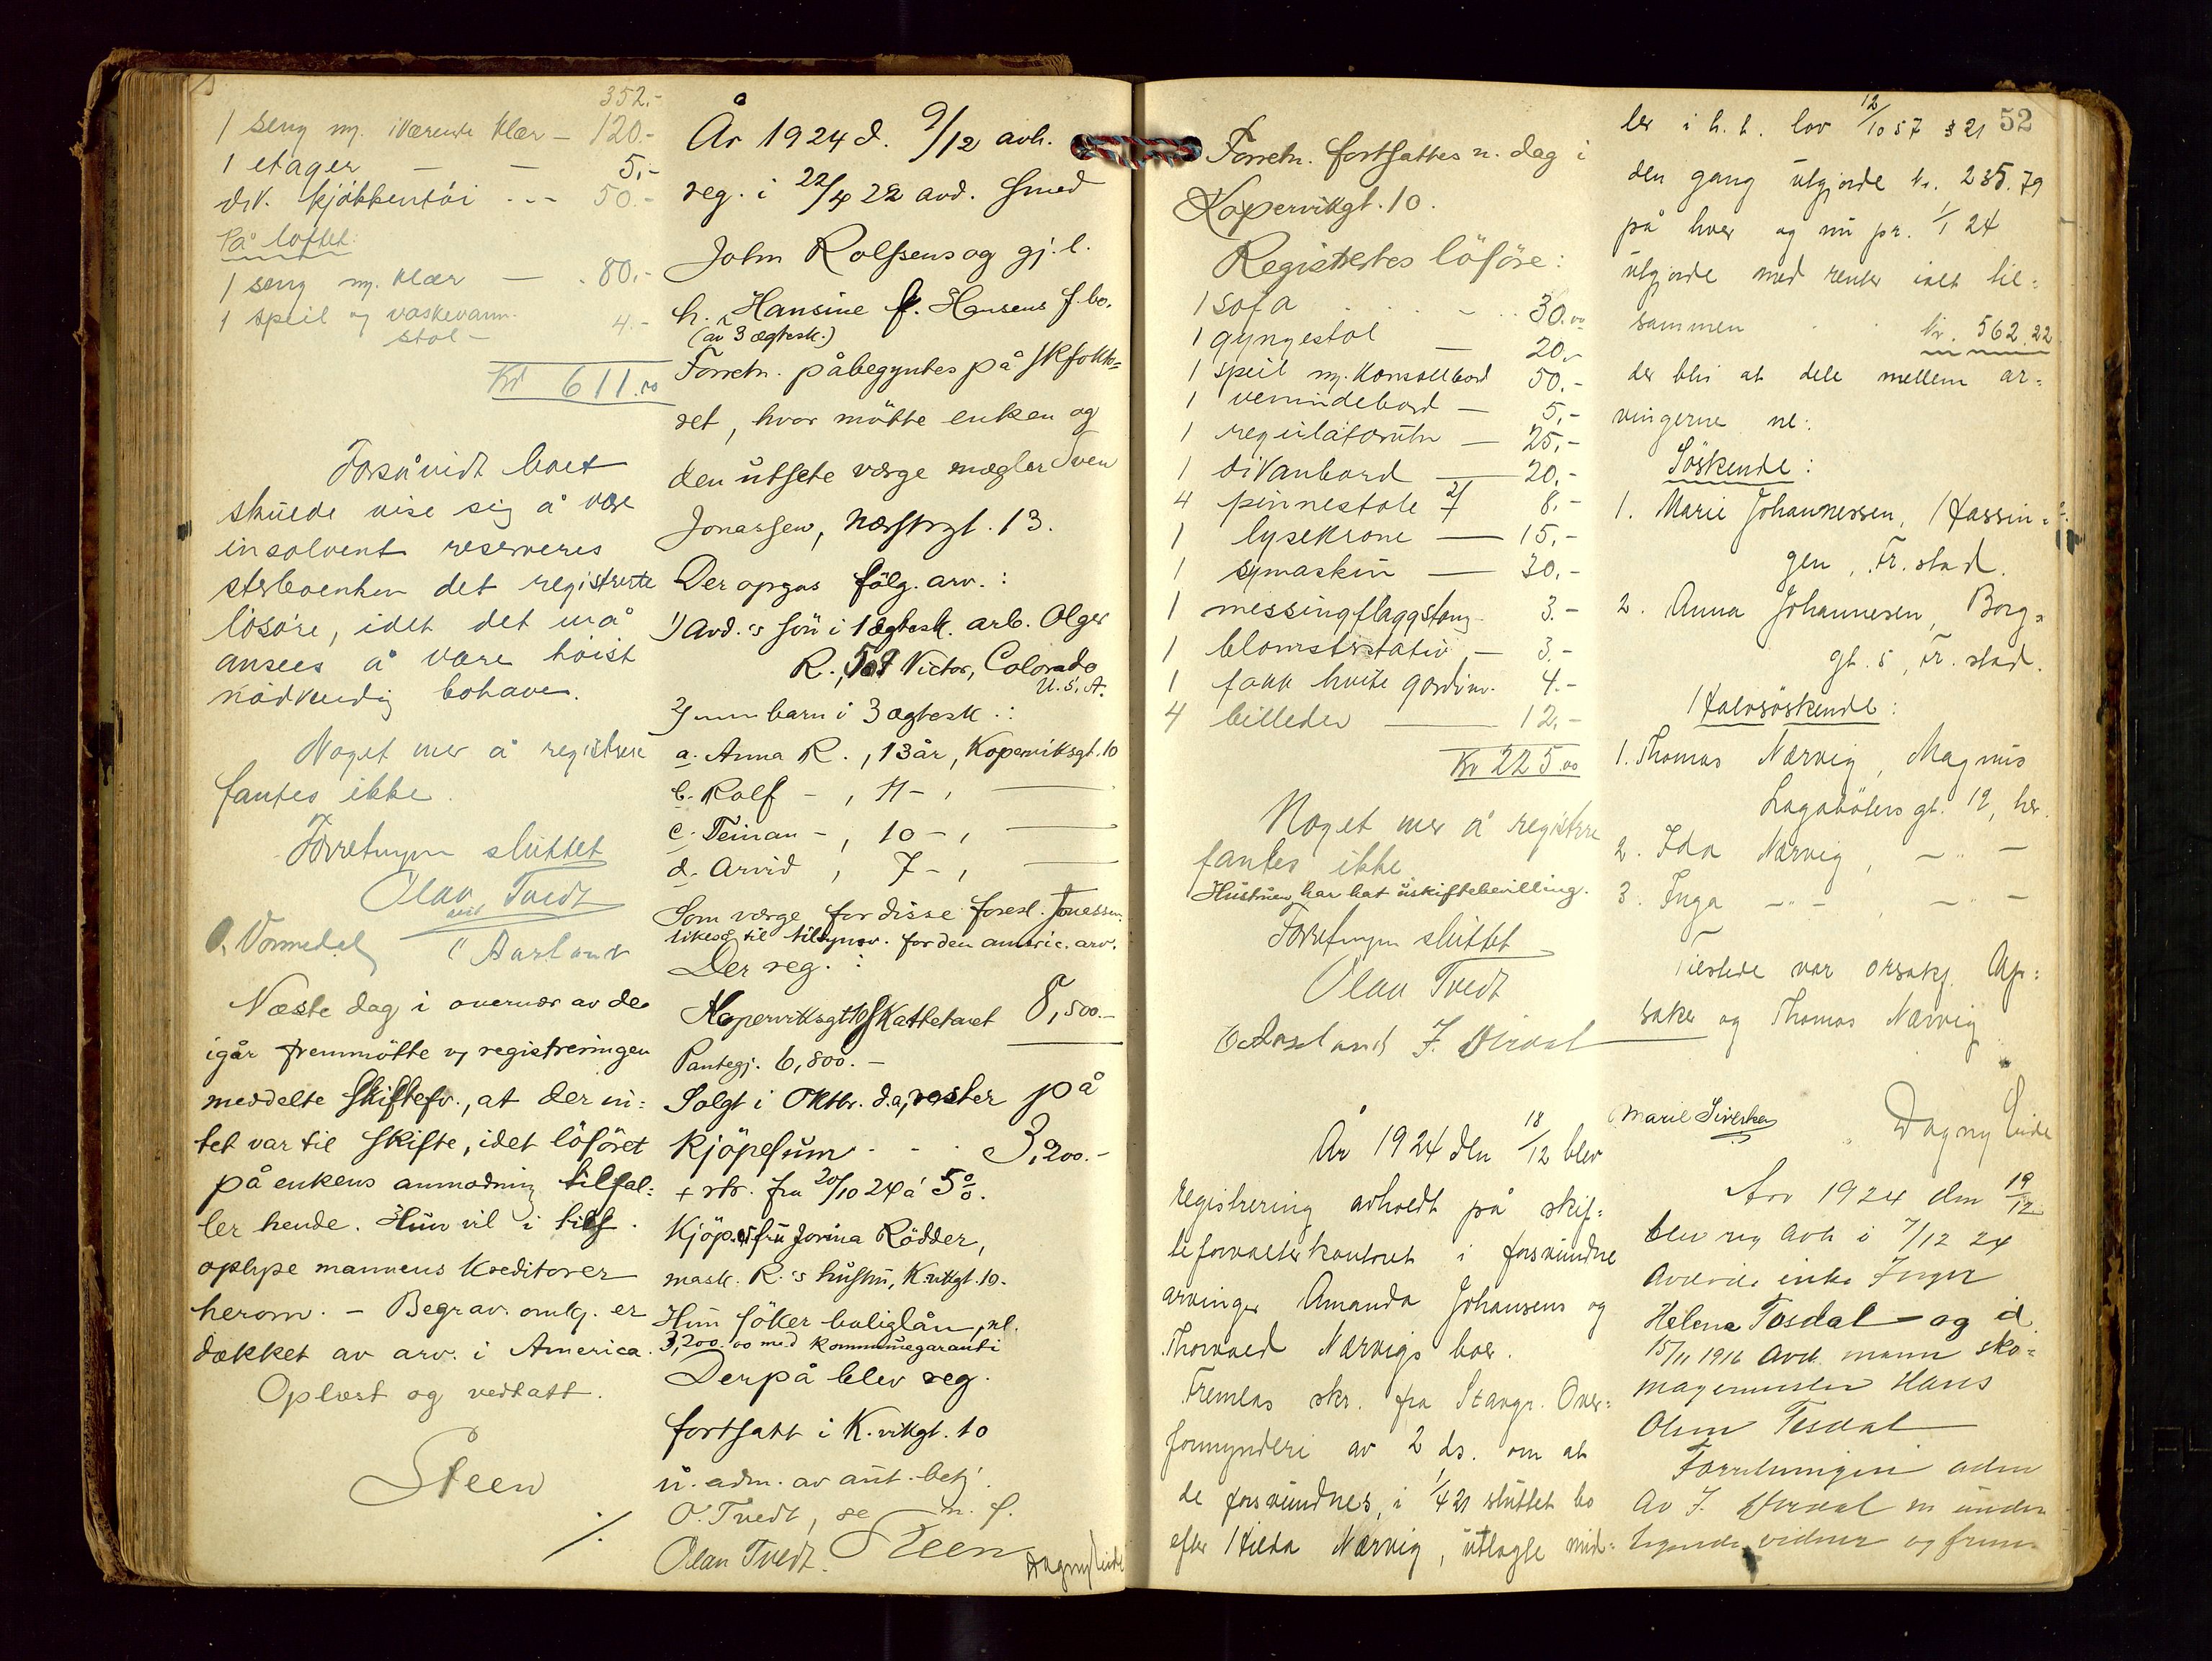 352.-
1 seng m. iværende klær — 120.-
1 etager — — 5.-
div. kjøkkentøi ... 50.-
På loftet:
1 seng m. klær — 80.-
1 speil og vaskevann.
stol — 4.-
Kr 611.00
Forsåvidt boet
skulde vise sig å være
insolvent reserveres
sterboenken det registrerte
løsøre, idet det må
ansees å være høist
nødvendig bohave.
Noget mer å registrere
fantes ikke.
Forretningen sluttet
Olav Tvedt
O. Vormedal Aarland
Næste dag i overvær av de
igår fremmøtte v/ registreringen
meddelte skiftefv., at der in:
tet var til skifte, idet løsøret
på enkens anmodning tilfal:
ler hende. Hun vil i tilf.
oplyse mannens kreditorer
herom. – Begrav. omk. er
dækket av arv. i America.
Oplæst og vedtatt.
Steen
År 1924 d. 9/12 avh.
reg. i 22/4 22 avd. smed
John Rolfsens og gj. l.
h. Hansine f. Hansens f. bo.
(av 3 ægtesk.)
Forretn. påbegyntes på skfokto=
ret, hvor møtte enken og
den utsete værge mægler Sven
Jonassen, Næsstrgt. 13.
Der opgas følg. arv. :
1) Avd.'s søn i 1 ægtesk. arb. Olger
R., 509 Victor, Colorado
U.S.A.
2) mm barn i 3 ægtesk. :
a. Anna R., 13 år, Koperviksgt. 10
b. Rolf - , 11 - , —
c. Teinan - , 10 - , —
d. Arvid , 7 - , —
Som værge for disse foresl. Jonassen
likeså til tilsynsv. for den americ. arv.
Der reg. :
Koperviksgt 10 Skattetaxt 8,500.-
Pantegj. 6,800.-
Solgt i Oktbr. d.a, rester på
kjøpesum - - . 3,200.-
+ rtr. fra 20/10 24 à 5%.
Kjøp. er fru Jorina Rødder,
mask. R.'s hustru, K.vikgt. 10.
Hun søker boliglån, nl.
3,200.00 med kommunegaranti
Derpå blev reg.
fortsatt i K.vikgt. 10
u. adm. av aut. betj.
O. Tvedt, se n. s.
Olav Tvedt. Steen Dagny Eide
52
Forretn. fortsattes n. dag i
Kopervikgt. 10.
Registrertes løsøre:
1 sofa . . . 30.00
1 gyngestol — 20.-
1 speil m. konsollbord 50.-
1 vevindebord — 5.-
1 regulatorutr — 25.-
1 divanbord — 20.-
4 pinnestole 2/ 8.-
1 lysekrone — 15.-
1 symaskin — 30.-
1 messingflaggstang 3.-
1 blomsterstativ — 3.-
1 fakk hvite gardiner. 4.-
4 billeder — 12.-
Kr 225.00
Noget mer å registrere
fantes ikke
Hustruen har hat uskiftebevilling.
Forretningen sluttet
Olav Tvedt
Aarland J. Sirdal
År 1924 den 18/12 blev
registrering avholdt på skif:
teforvalterkontoret i forsvundne
arvinger Amanda Johansens og
Thorvald Nærvigs boer.
Fremlas skr. fra Stavgr. Over:
formynderi av 2 ds. om at
de forsvundnes, i 1/4 21 sluttet bo
efter Hilda Nærvig, utlagte mid=
ler i h. t. lov 12/10 57 § 21
den gang utgjorde kr. 235.79
på hver og nu pr. 1/1 24
utgjorde med renter ialt til=
sammen . . kr. 562.22
der blir at dele mellem ar=
vingerne nl:.
Søskende:
1. Marie Johannessen, Hassin=
gen, Fr.stad.
2. Anna Johannesen, Borg=
gt. 5, Fr.stad.
Halvsøskende:
1. Thomas Nærvig, Magnus
Lagabøters gt. 12, her.
2. Ida Nærvig, — " —
3. Inga — " — , — " —
Tilstede var orsakf. Ap:
saker og Thomas Nærvig
Marie Sivertsen Dagny Eide
Aar 1924 den 19/12
blev reg avh i 7/12 24
Avdøde enke Inger
Helene Tosdal – og d.
15/11 1916 avd. mann sko=
magermester Hans
Olsen Tosdal
Forretningen adm
av J. Sirdal m under
tegnede vidner og frem=